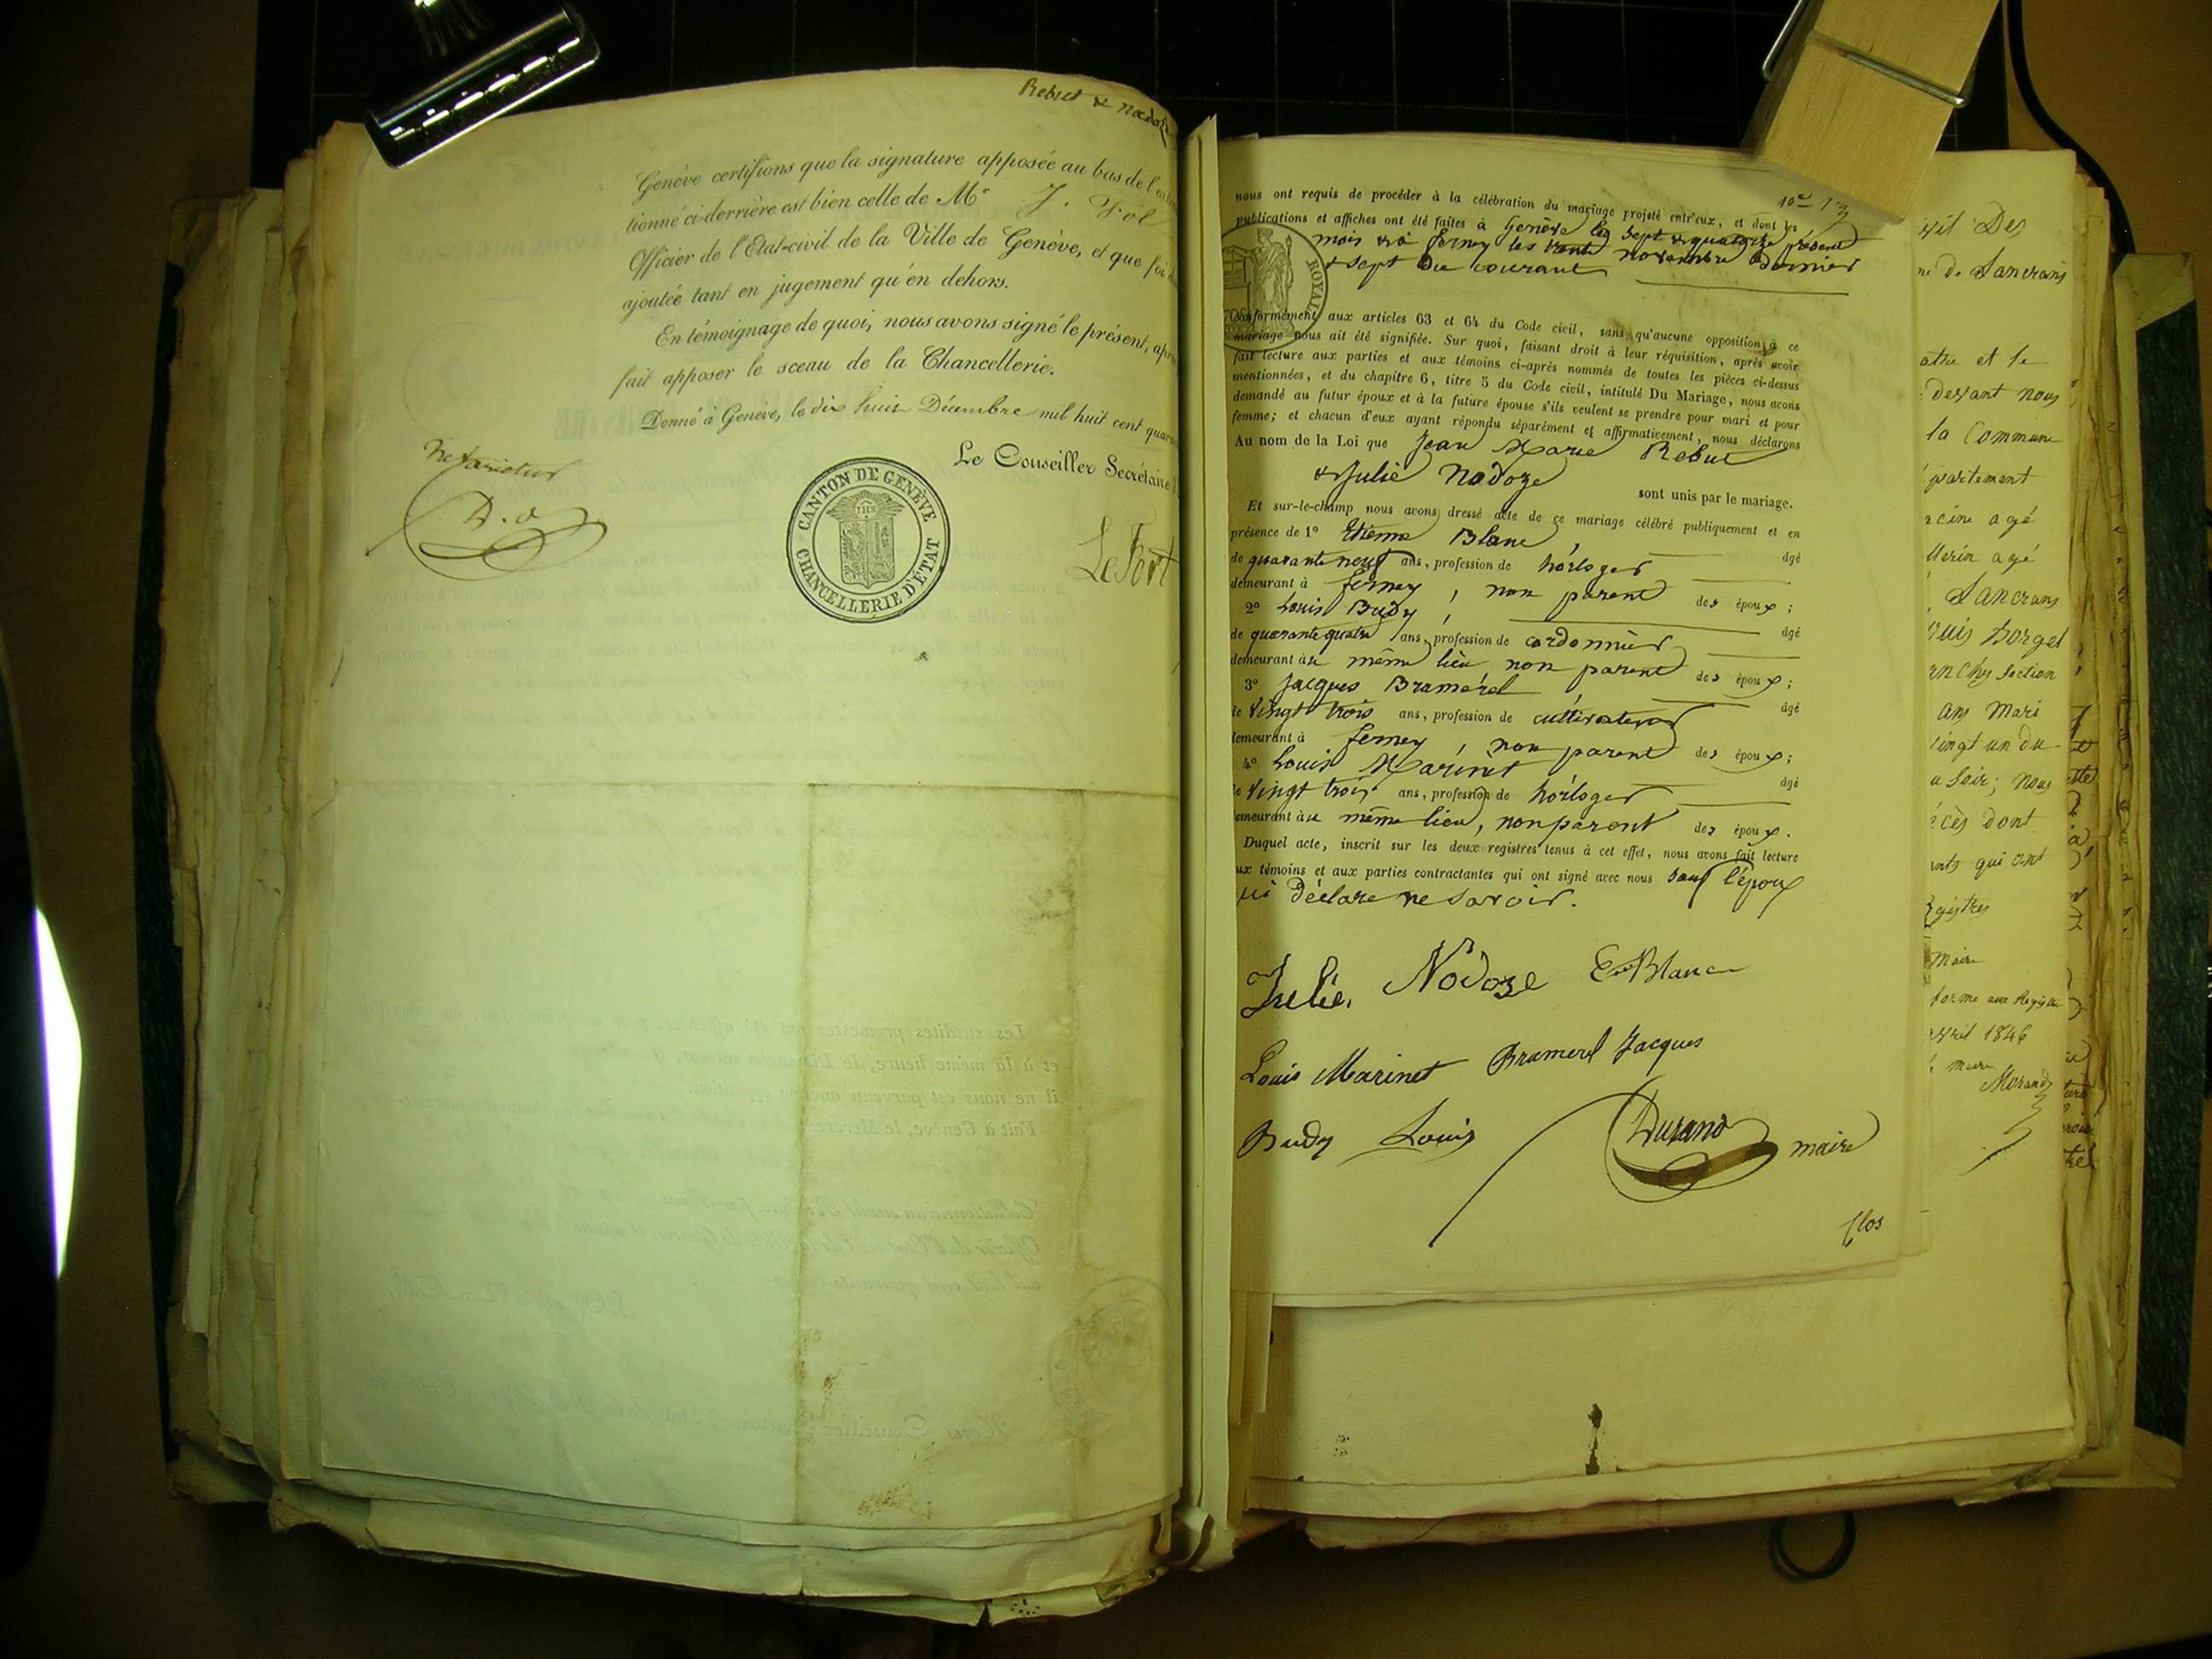 Rebut & Nodoz
Genève certifions que la signature apposée au bas de l'
tionné ci-derrière est bien celle de Mr J.
Officier de l'Etat-civil de la Ville de Genève, et que foi
ajoutée tant en jugement qu'en dehors.
En témoignage de quoi, nous avons signé le présent,
fait apposer le sceau de la Chancellerie.
Donné à Genève, le dix huit Décembre mil huit cent
Le Conseiller Secrétaire
Le Fort
Ne varietur
CANTON DE GENÈVE
CHANCELLERIE D'ÉTAT
IHS
nous ont requis de procéder à la célébration du mariage projeté entr'eux, et dont les
publications et affiches ont été faites à Genève les sept & quatorze présent
mois & à ferney les trente novembre dernier
& sept du courant
ROYAL
Conformément aux articles 63 et 64 du Code civil, sans qu'aucune opposition à ce
mariage nous ait été signifiée. Sur quoi, faisant droit à leur réquisition, après avoir
fait lecture aux parties et aux témoins ci-après nommés de toutes les pièces ci-dessus
mentionnées, et du chapitre 6, titre 5 du Code civil, intitulé Du Mariage, nous avons
demandé au futur époux et à la future épouse s'ils veulent se prendre pour mari et pour
femme; et chacun d'eux ayant répondu séparément et affirmativement, nous déclarons
Au nom de la Loi que Jean Marie Rebut
& Julie Nodoze sont unis par le mariage.
Et sur-le-champ nous avons dressé acte de ce mariage célébré publiquement et en
présence de 1° Etienne Blanc, âgé
de quarante neuf ans, profession de horloger
demeurant à ferney, non parent des époux;
2° Louis Budy, âgé
de quarante quatre ans, profession de cordonnier
demeurant au même lieu non parent des époux;
3° Jacques Bramerel âgé
de vingt trois ans, profession de cultivateur
demeurant à ferney, non parent des époux;
4° Louis Marinet âgé
de vingt trois ans, profession de horloger
demeurant au même lieu, non parent des époux.
Duquel acte, inscrit sur les deux registres tenus à cet effet, nous avons fait lecture
aux témoins et aux parties contractantes qui ont signé avec nous sauf l'époux
qui déclare ne savoir.
Julie Nodoze E Blanc
Louis Marinet Bramerel Jacques
Budy Louis Durand maire
Clos
de Lancrans
et le
devant nous
la Commune
agé
agé
Lancrans
section
ans Mari
vingt un du
soir; nous
dont
qui ont
maire
forme aux Registres
avril 1846
maire
Morand